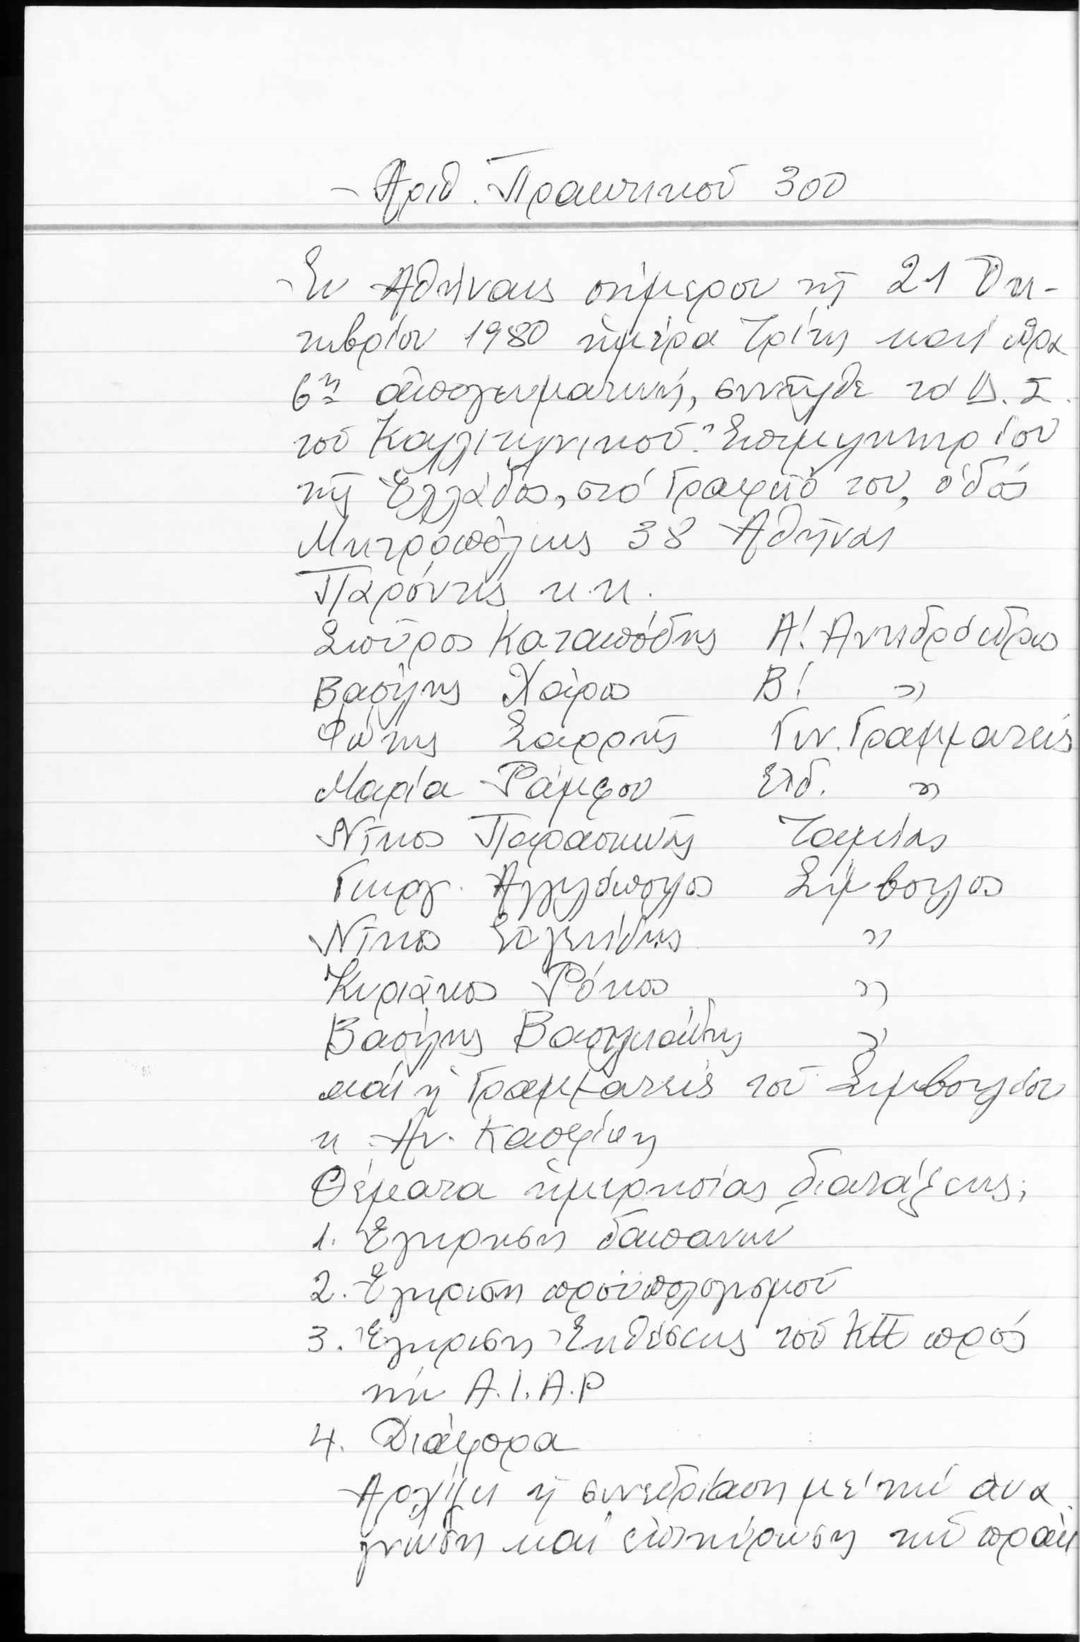 Ἀριθ. Πρακτικοῦ 300
Ἐν Ἀθήναις σήμερον τῇ 21 Ὀκ-
τωβρίου 1980 ἡμέρα Τρίτη καί ὥρα
6η ἀπογευματινή, συνῆλθε τό Δ.Σ.
τοῦ Καλλιτεχνικοῦ Ἐπιμελητηρίου
τῆς Ἑλλάδος, στό Γραφεῖο του, ὁδός
Μητροπόλεως 38 Ἀθῆναι
Παρόντες κ.κ.
Σπῦρος Καταπόδης Α! Ἀντιπρόεδρος
Βασίλης Χάρος Β! "
Φώτης Σαρρῆς Γεν. Γραμματεύς
Μαρία Ράμφου Εἰδ. "
Νῖκος Παρασκευᾶς Ταμίας
Γεώργ. Ἀγγελόπουλος Σύμβουλος
Νῖκος "
Κυριάκος Ρόκος "
Βασίλης Βασιλειάδης "
καί ἡ Γραμματεύς τοῦ Συμβουλίου
κ. Αν.
Θέματα ἡμερησίας διατάξεως;
1. Ἔγκριση δαπανῶν
2. Ἔγκριση προϋπολογισμοῦ
3. Ἔγκριση Ἐκθέσεως τοῦ ΚΕΕ πρός
τήν A.I.A.P
4. Διάφορα
Ἀρχίζει ἡ συνεδρίαση μέ τήν ἀνα
γνώση καί ἐπικύρωση τῶν πρακ